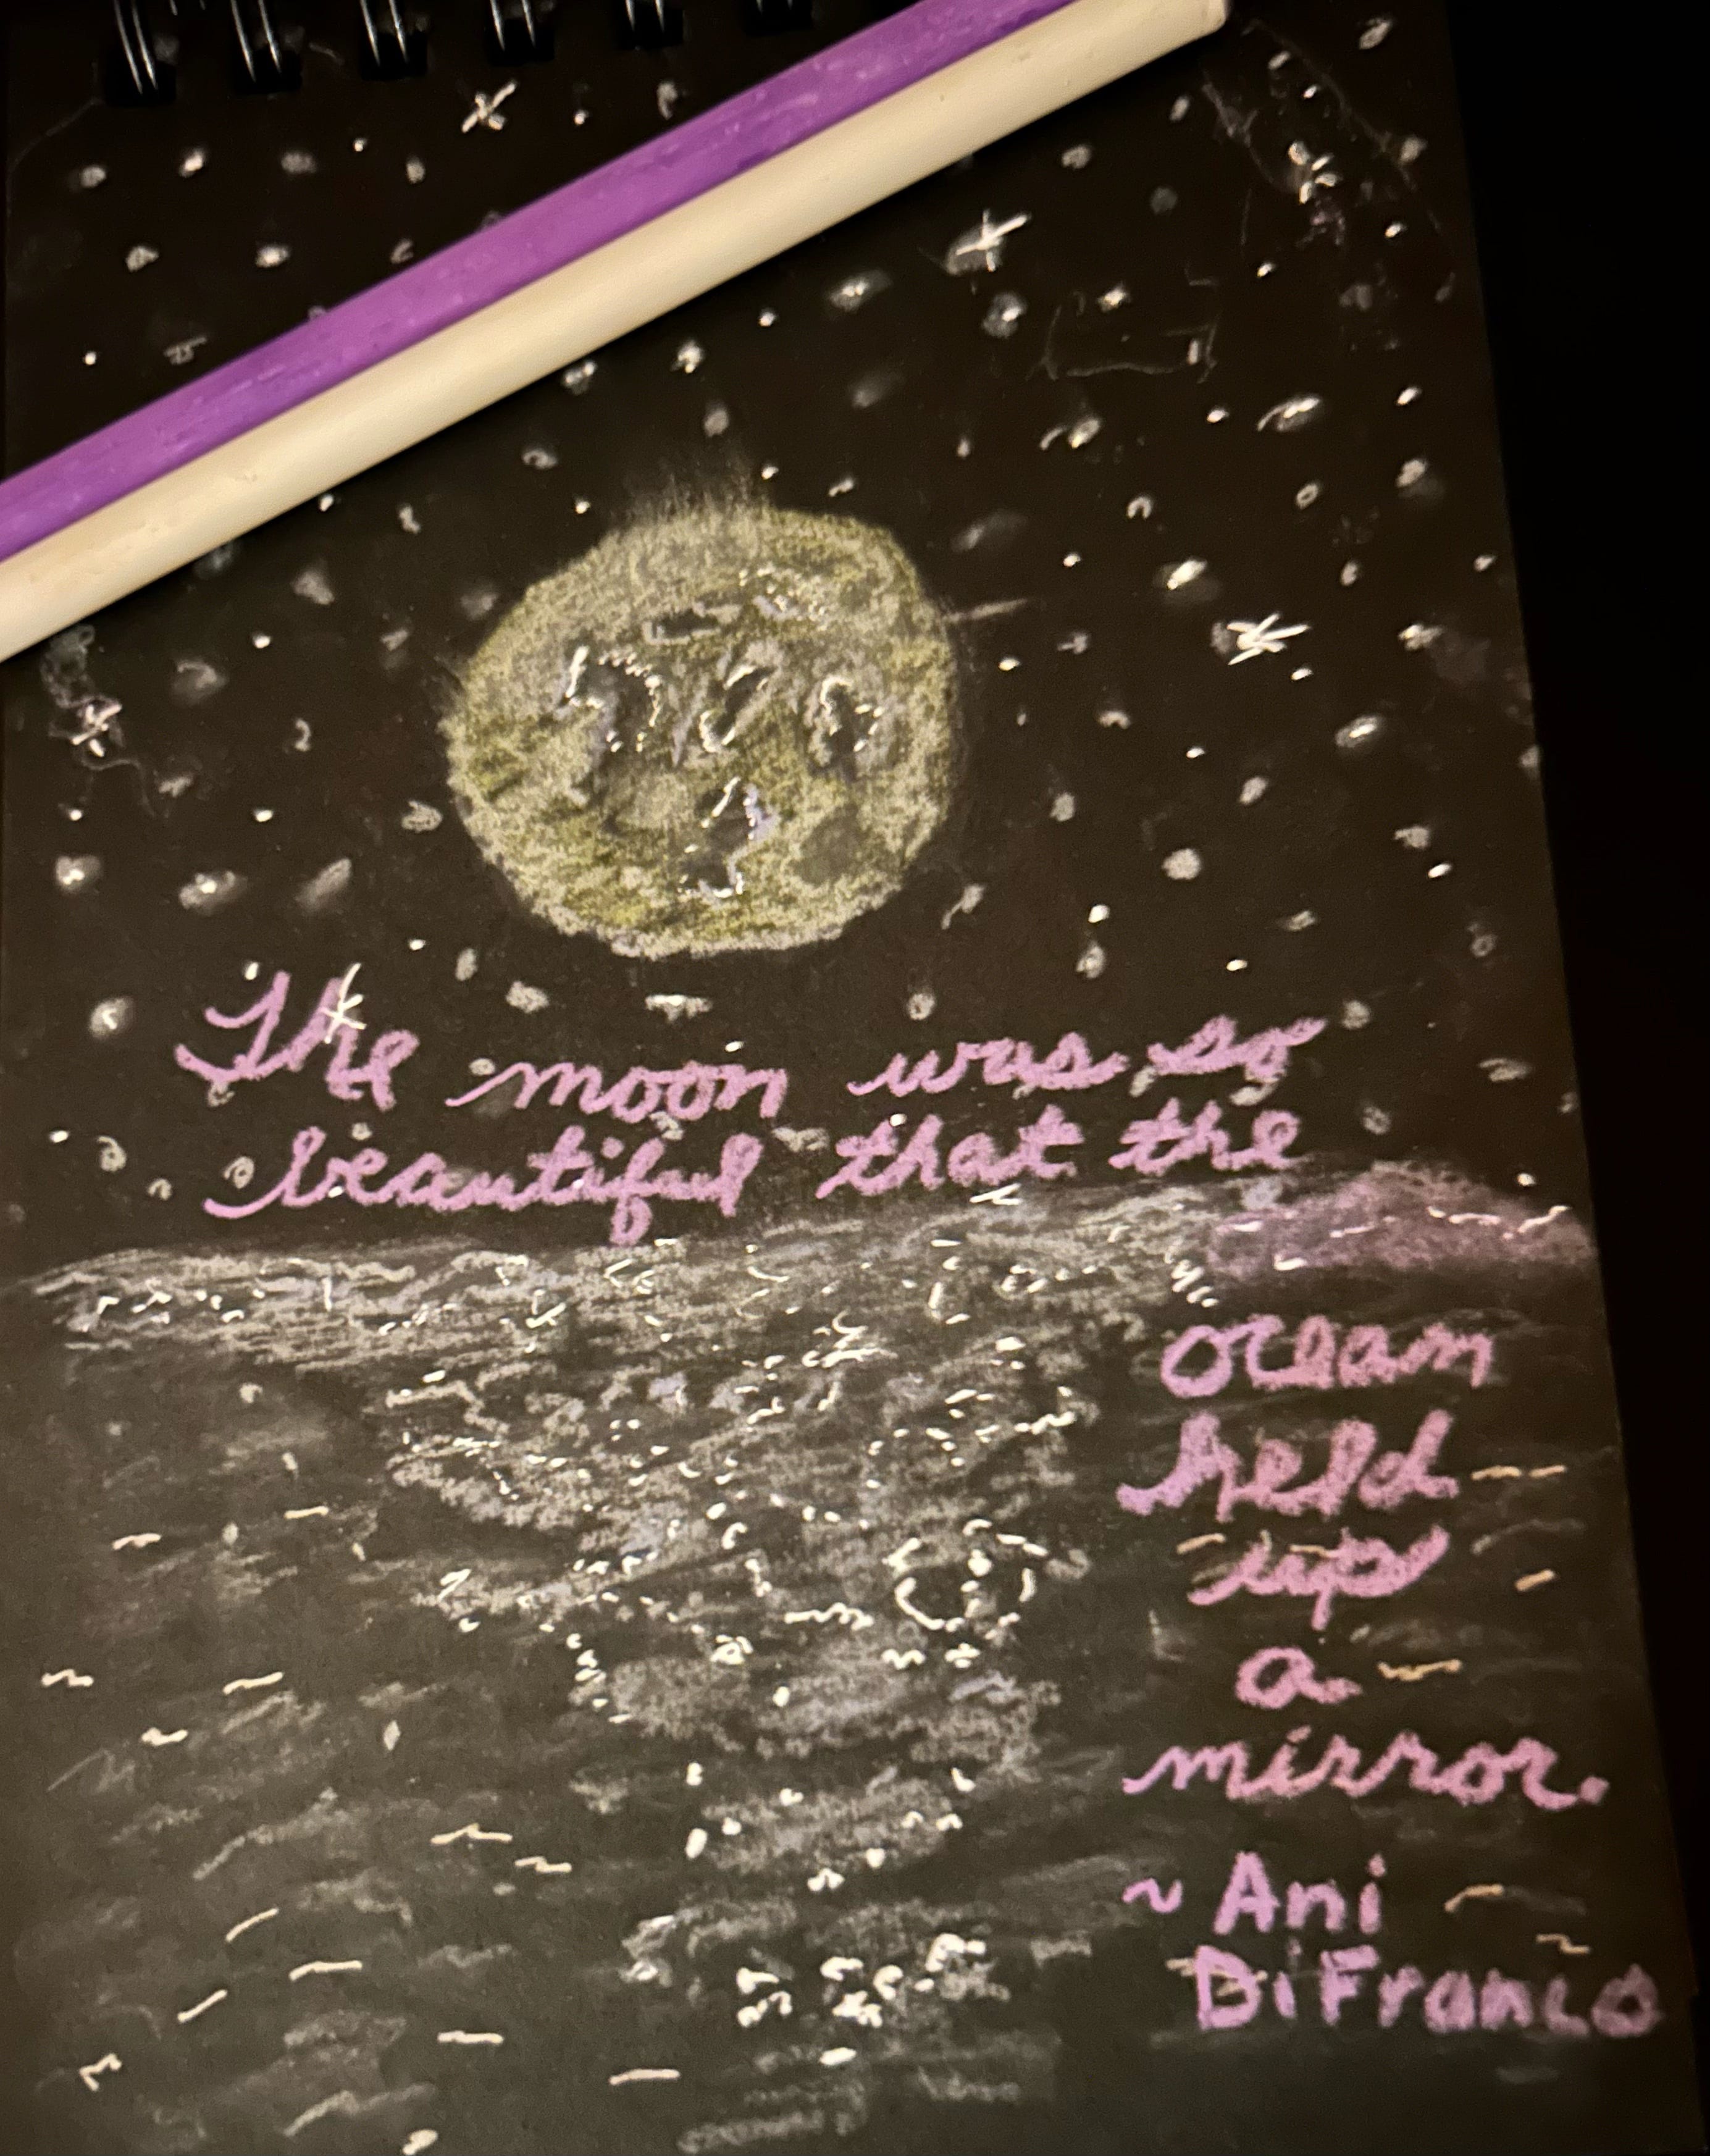 The moon was so
beautiful that the
ocean
held
up
a
mirror.
~ Ani
DiFranco